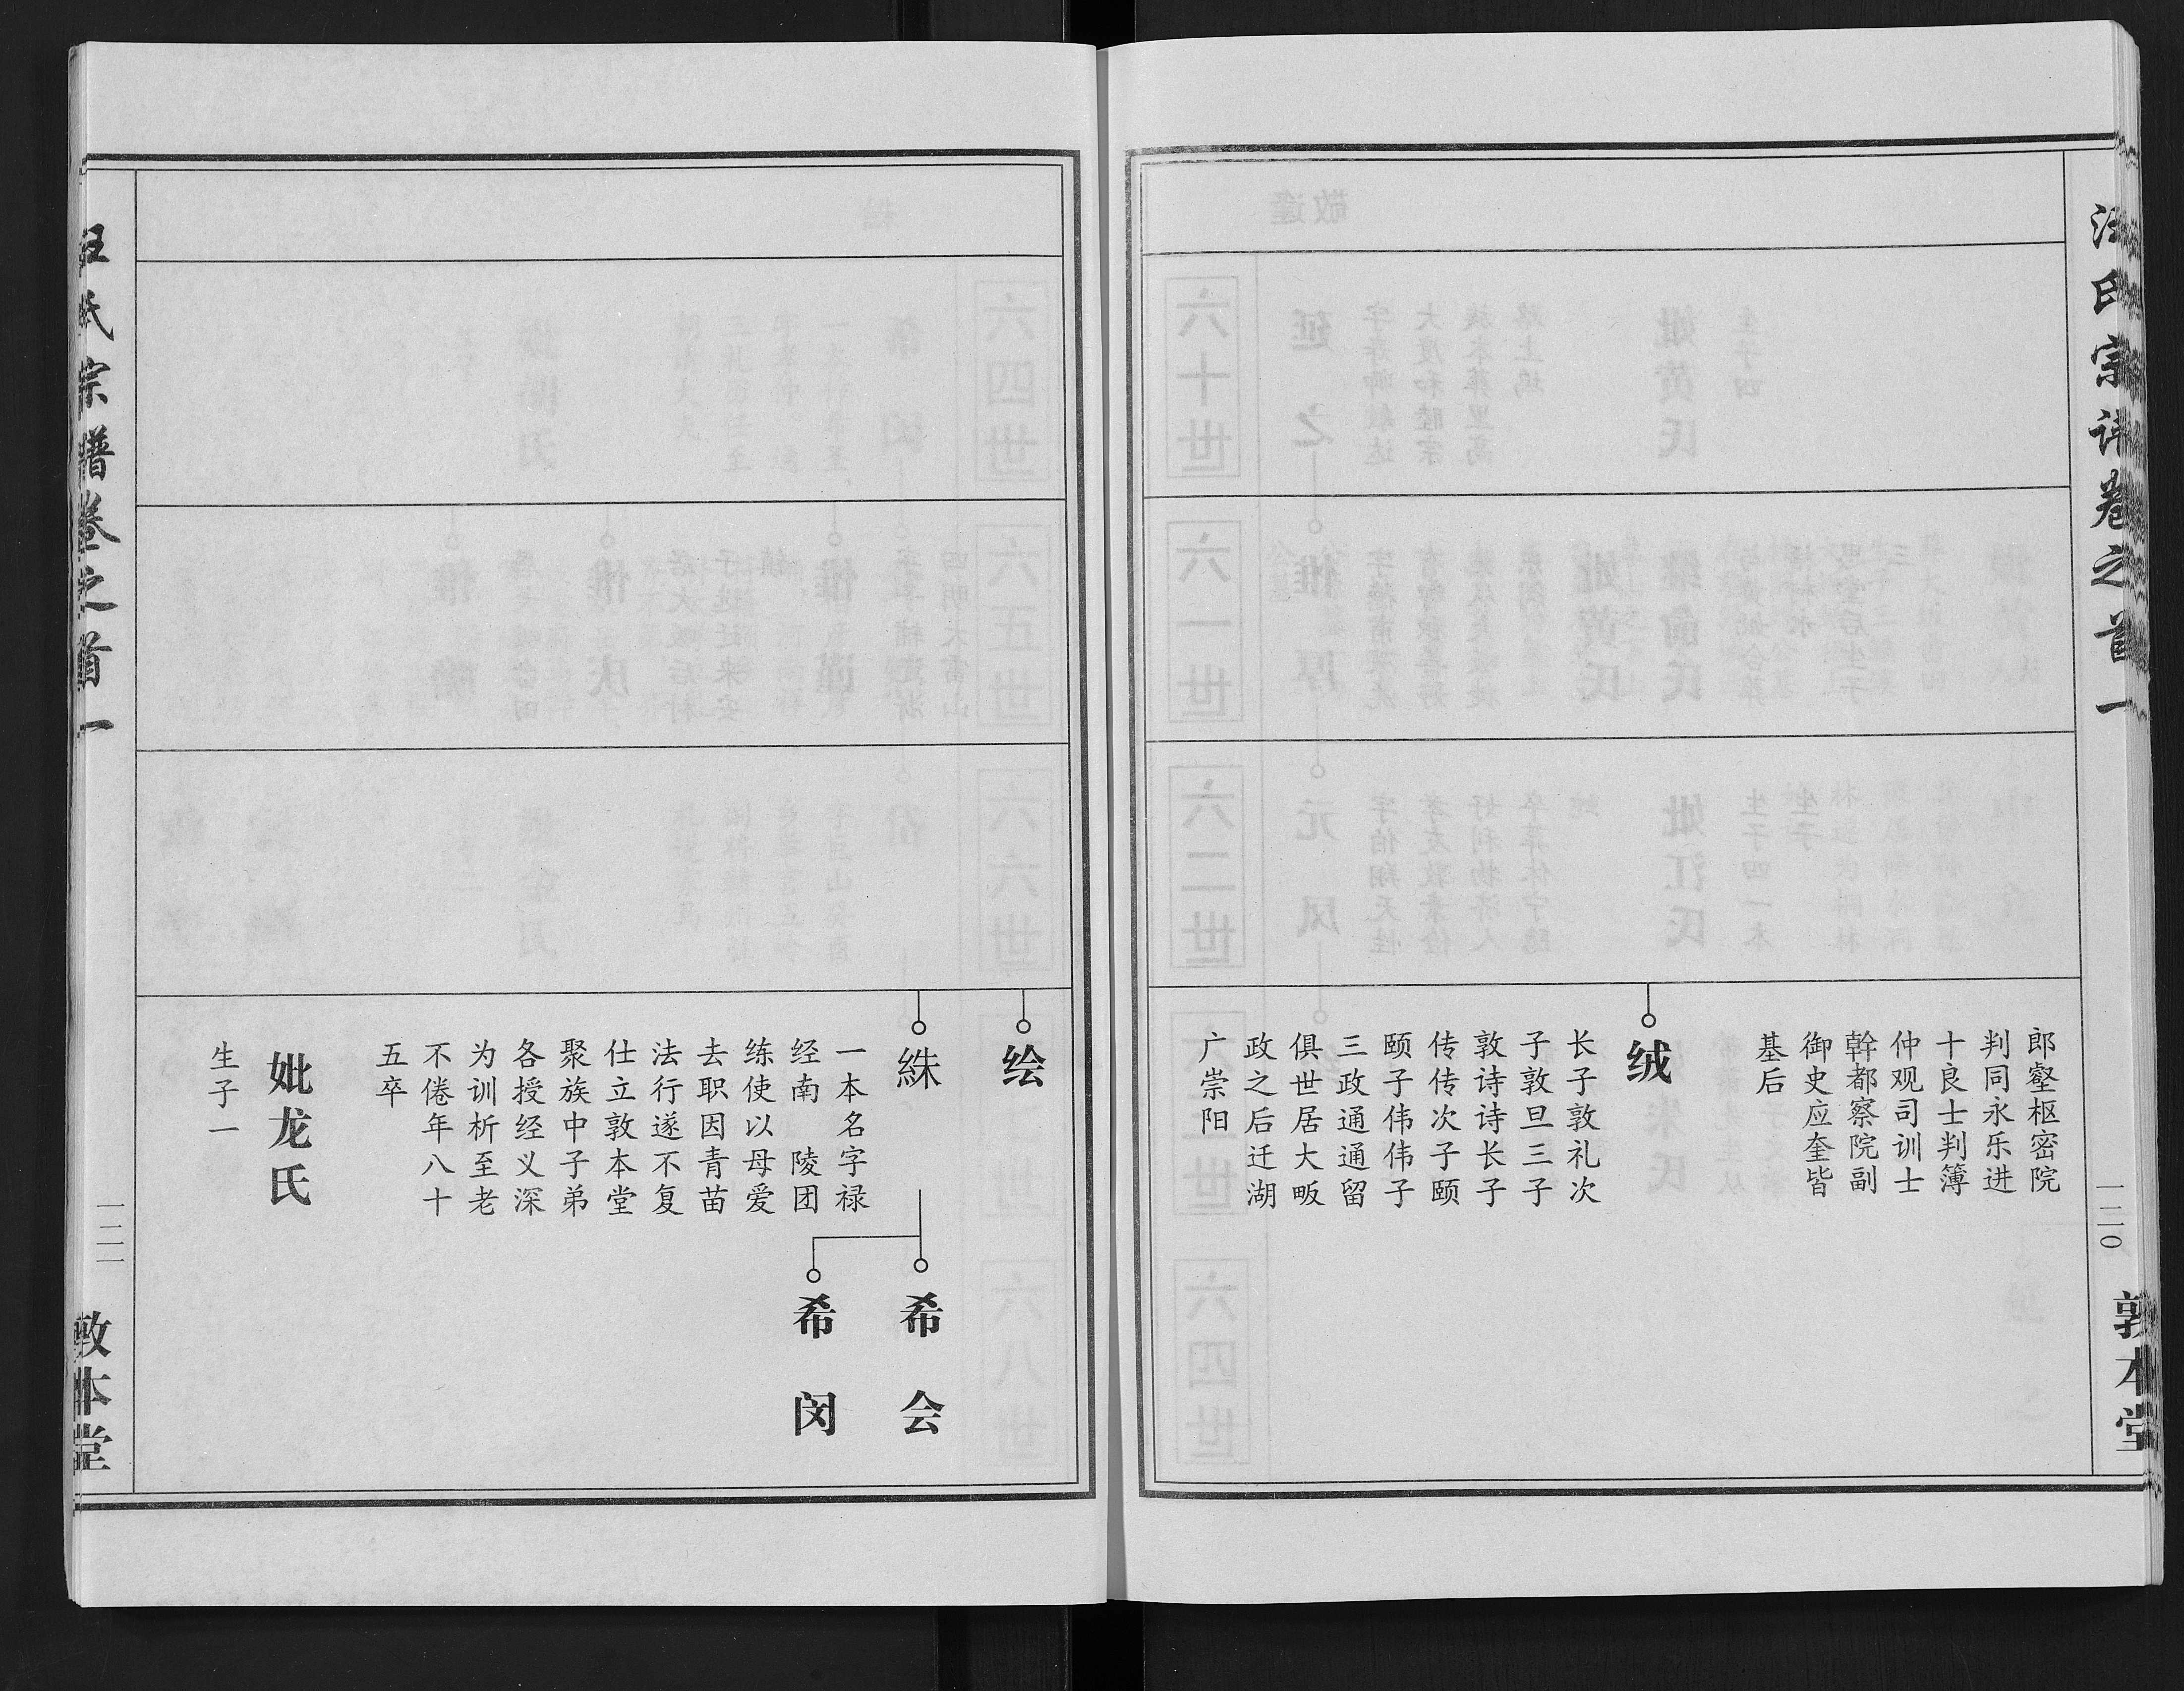 汪氏宗谱卷之首一
一二〇
敦本堂
郎壑枢密院
判同永乐进
十良士判簿
仲观司训士
幹都察院副
御史应奎皆
基后
绒
长子敦礼次
子敦旦三子
敦诗诗长子
传传次子颐
颐子伟伟子
三政通通留
俱世居大畈
政之后迁湖
广崇阳
绘
絑
一本名字禄
经南　陵团
练使以母爱
去职因青苗
法行遂不复
仕立敦本堂
聚族中子弟
各授经义深
为训析至老
不倦年八十
五卒
妣龙氏
生子一
希会
希闵
汪氏宗谱卷之首一
一二一
敦本堂